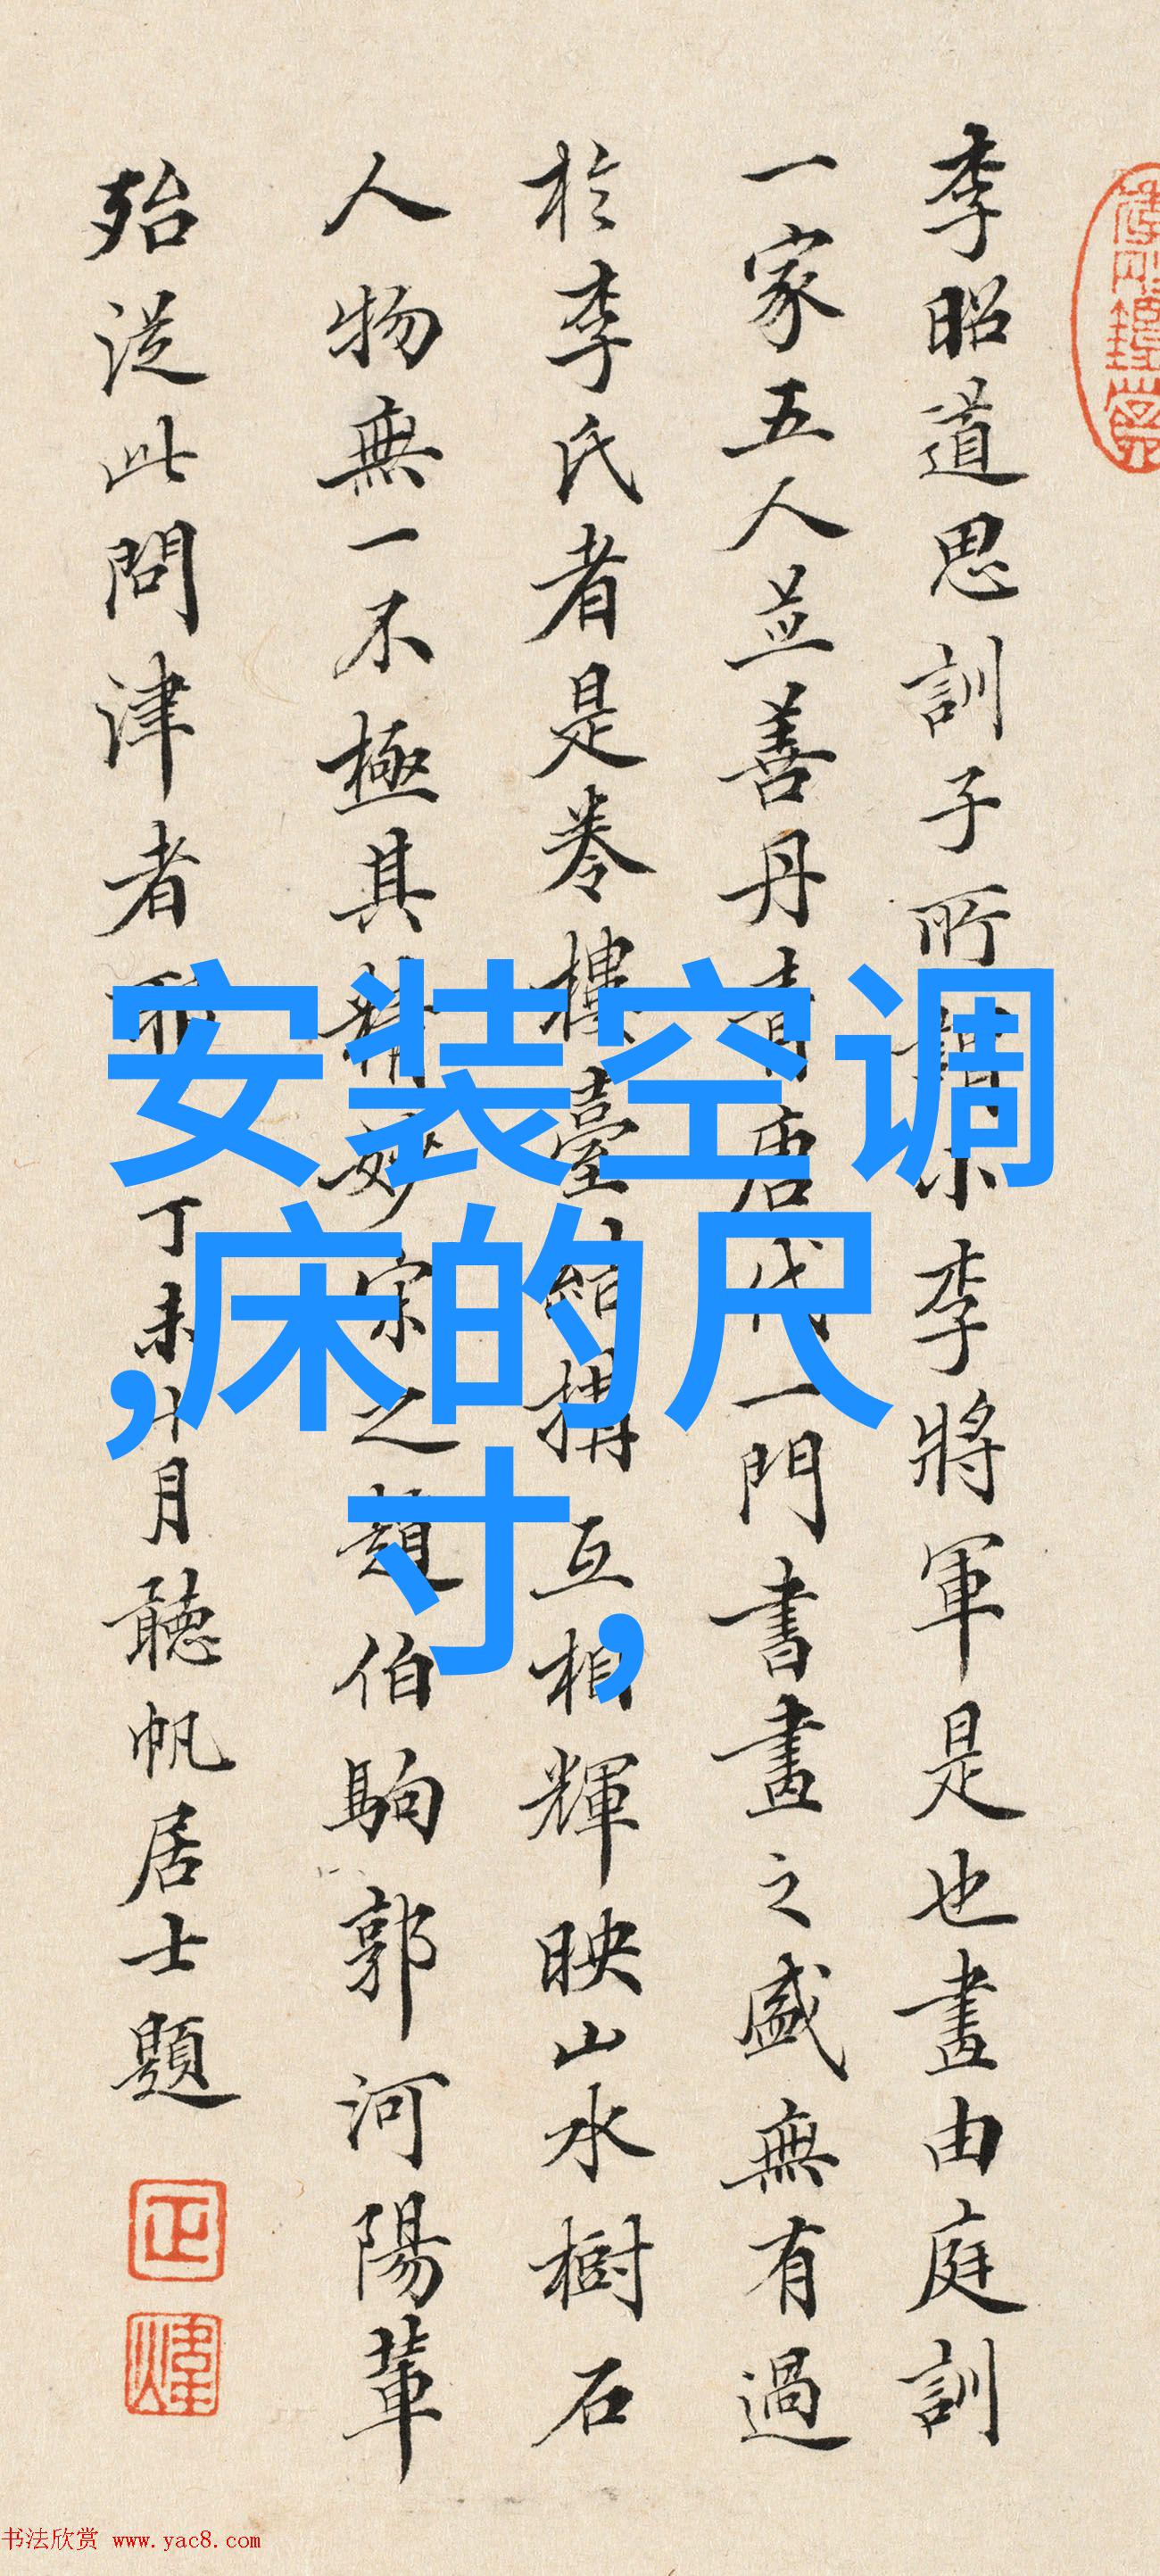 李昭道思訓子所謂小李將軍是也畫由庭訓
一家五人並善丹青唐代一門書畫之盛無有過
於李氏者是卷樓臺結構互相輝映山水樹石
人物無一不極其精妙宋之趙伯駒郭河陽輩
殆從此問津者耶丁未十月聽帆居士題
安装空调
,床的尺
寸,
书法欣赏 www.yac8.com